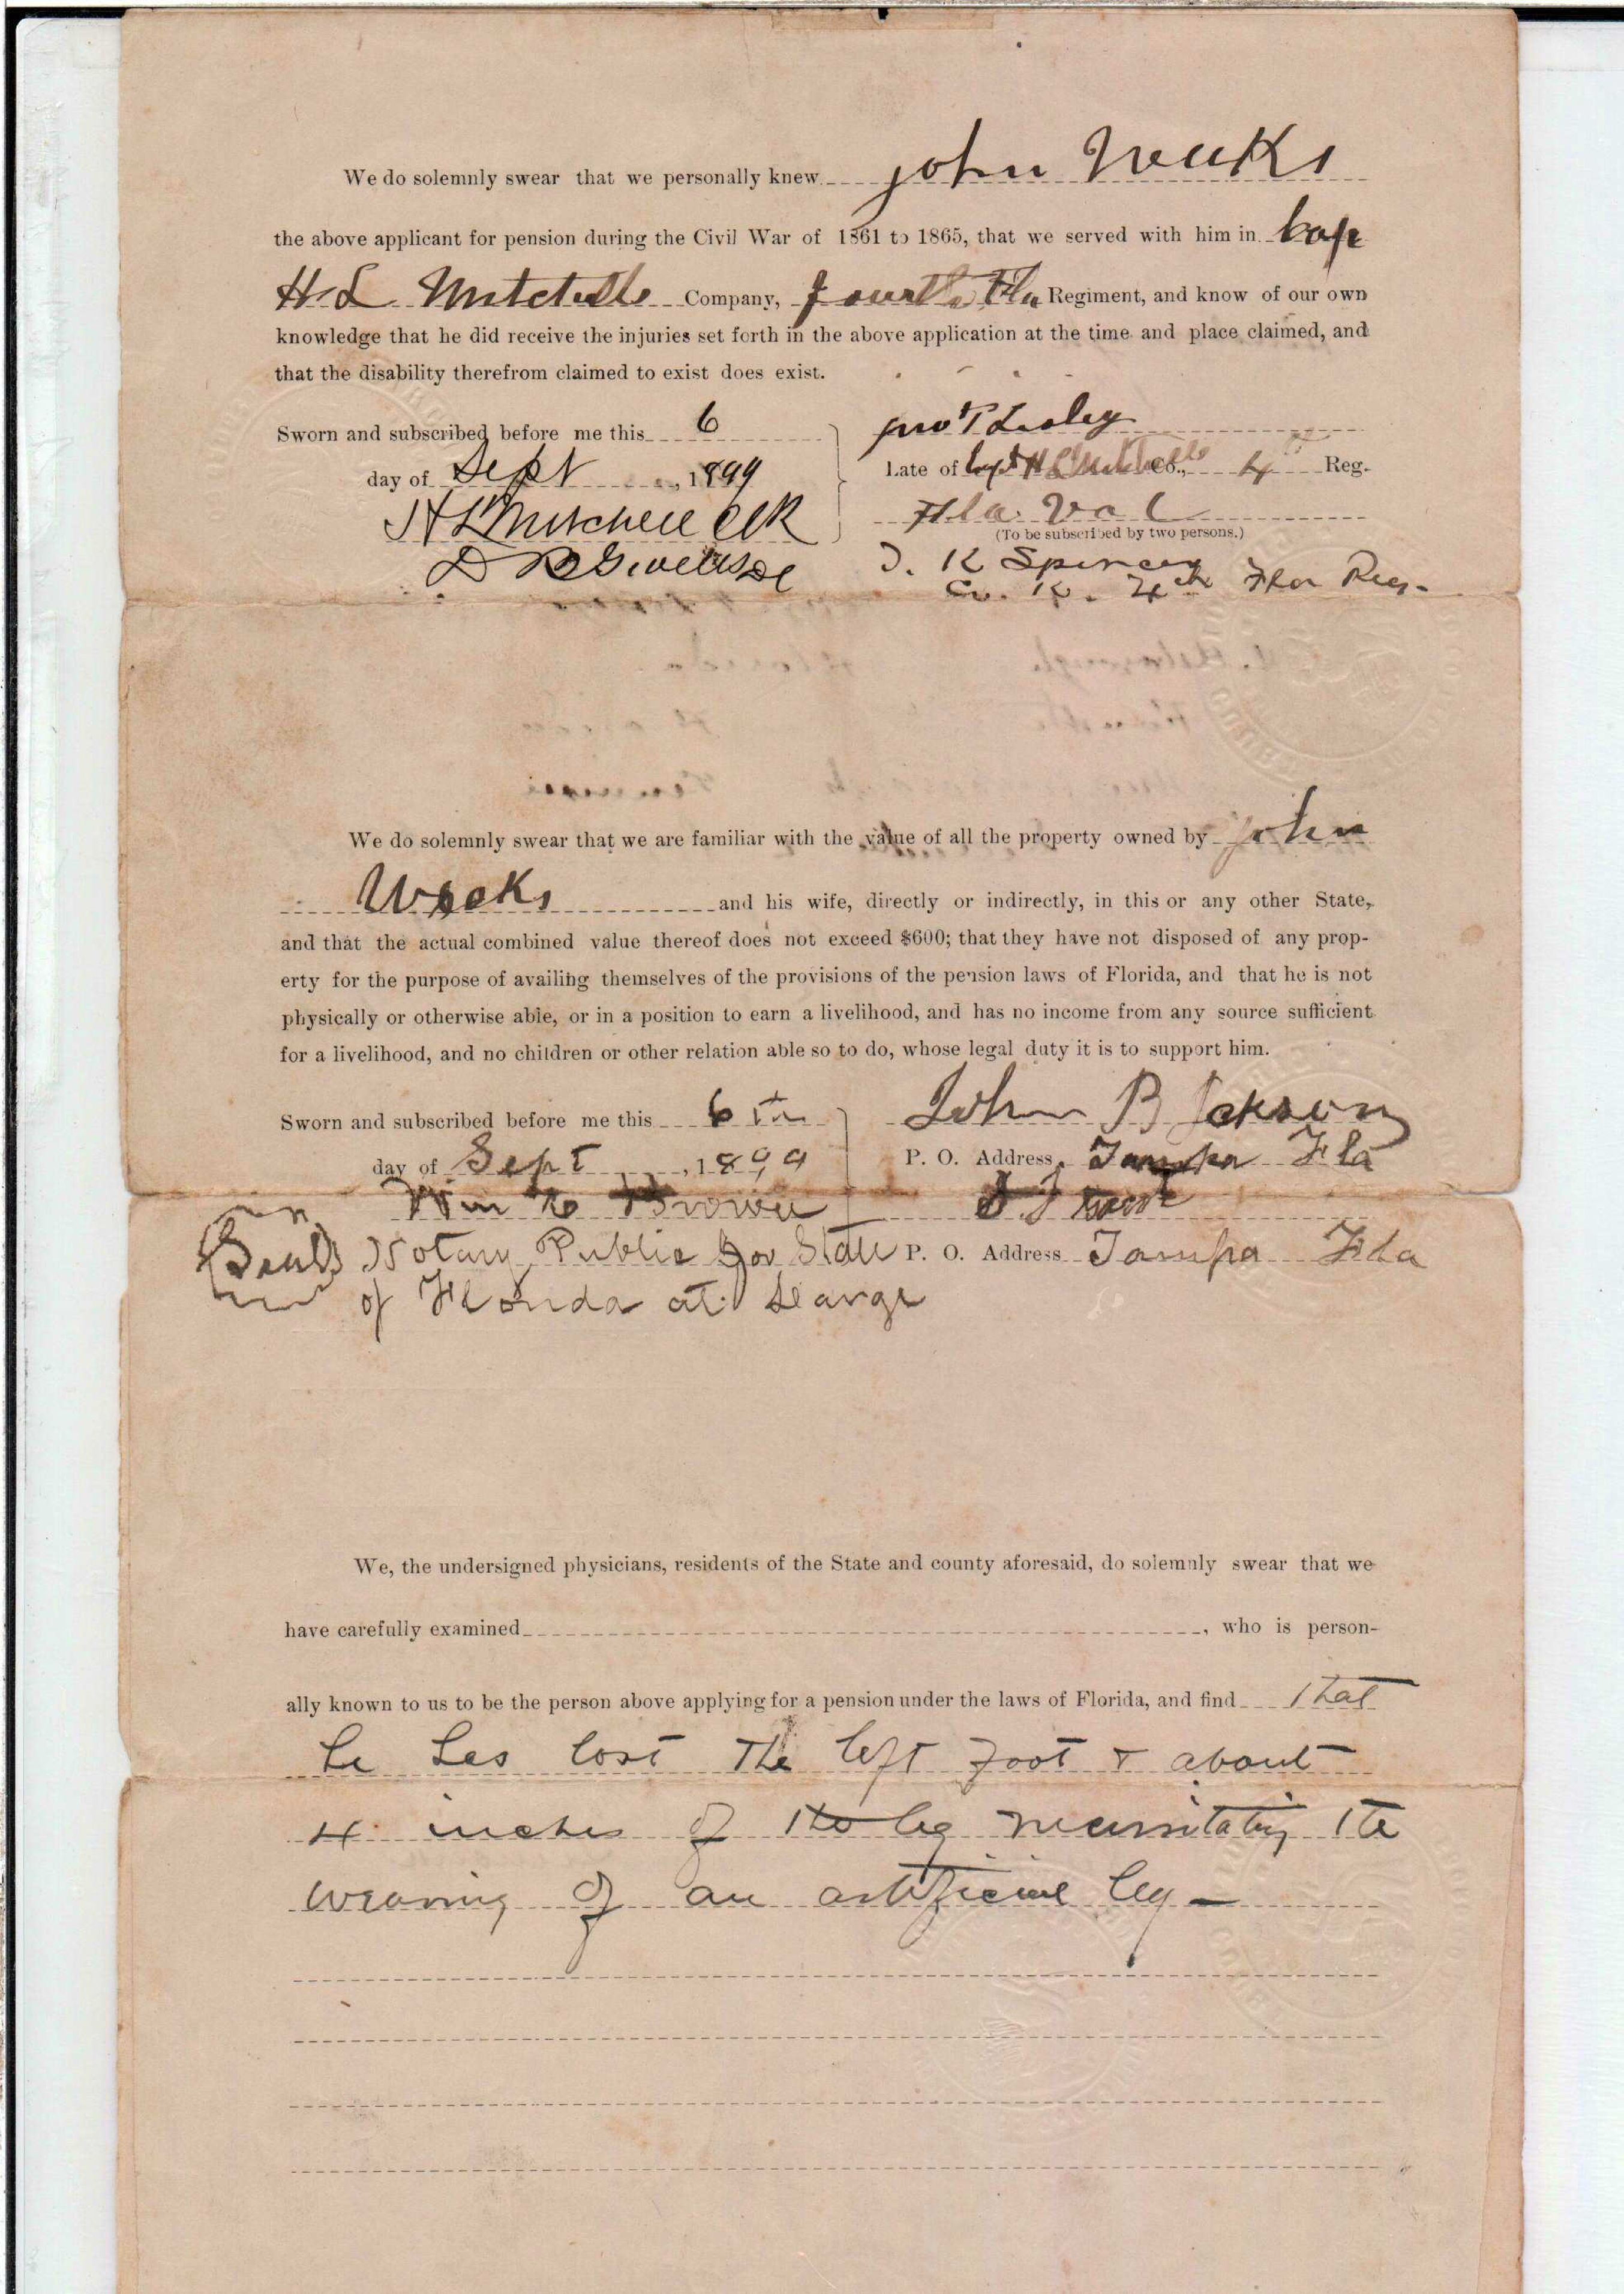 We do solemnly swear that we personally knew John Weeks
the above applicant for pension during the Civil War of 1861 to 1865, that we served with him in Capt
H L Mitchells Company, fourth Fla Regiment, and know of our own
knowledge that he did receive the injuries set forth in the above application at the time and place claimed, and
that the disability therefrom claimed to exist does exist.
Sworn and subscribed before me this 6
day of Sept, 1899
H L Mitchell Clk
D B Givens DC
Jno T Lesley
Late of Capt H L Mitchells Co., 4th Reg.
Fla. Vol
(To be subscribed by two persons.)
T. K Spencer
Co. K. 4th Flor Reg.
We do solemnly swear that we are familiar with the value of all the property owned by John
Weeks and his wife, directly or indirectly, in this or any other State,
and that the actual combined value thereof does not exceed $600; that they have not disposed of any prop-
erty for the purpose of availing themselves of the provisions of the pension laws of Florida, and that he is not
physically or otherwise able, or in a position to earn a livelihood, and has no income from any source sufficient
for a livelihood, and no children or other relation able so to do, whose legal duty it is to support him.
Sworn and subscribed before me this 6th
day of Sept, 1899
Wm Brown
Seal Notary Public for State
of Florida at Large
John B Jckson
P. O. Address Tampa Fla
P. O. Address Tampa Fla
We, the undersigned physicians, residents of the State and county aforesaid, do solemnly swear that we
have carefully examined, who is person-
ally known to us to be the person above applying for a pension under the laws of Florida, and find that
he has lost the left foot & about
4 inches of the leg necessitating the
wearing of an artificial leg -